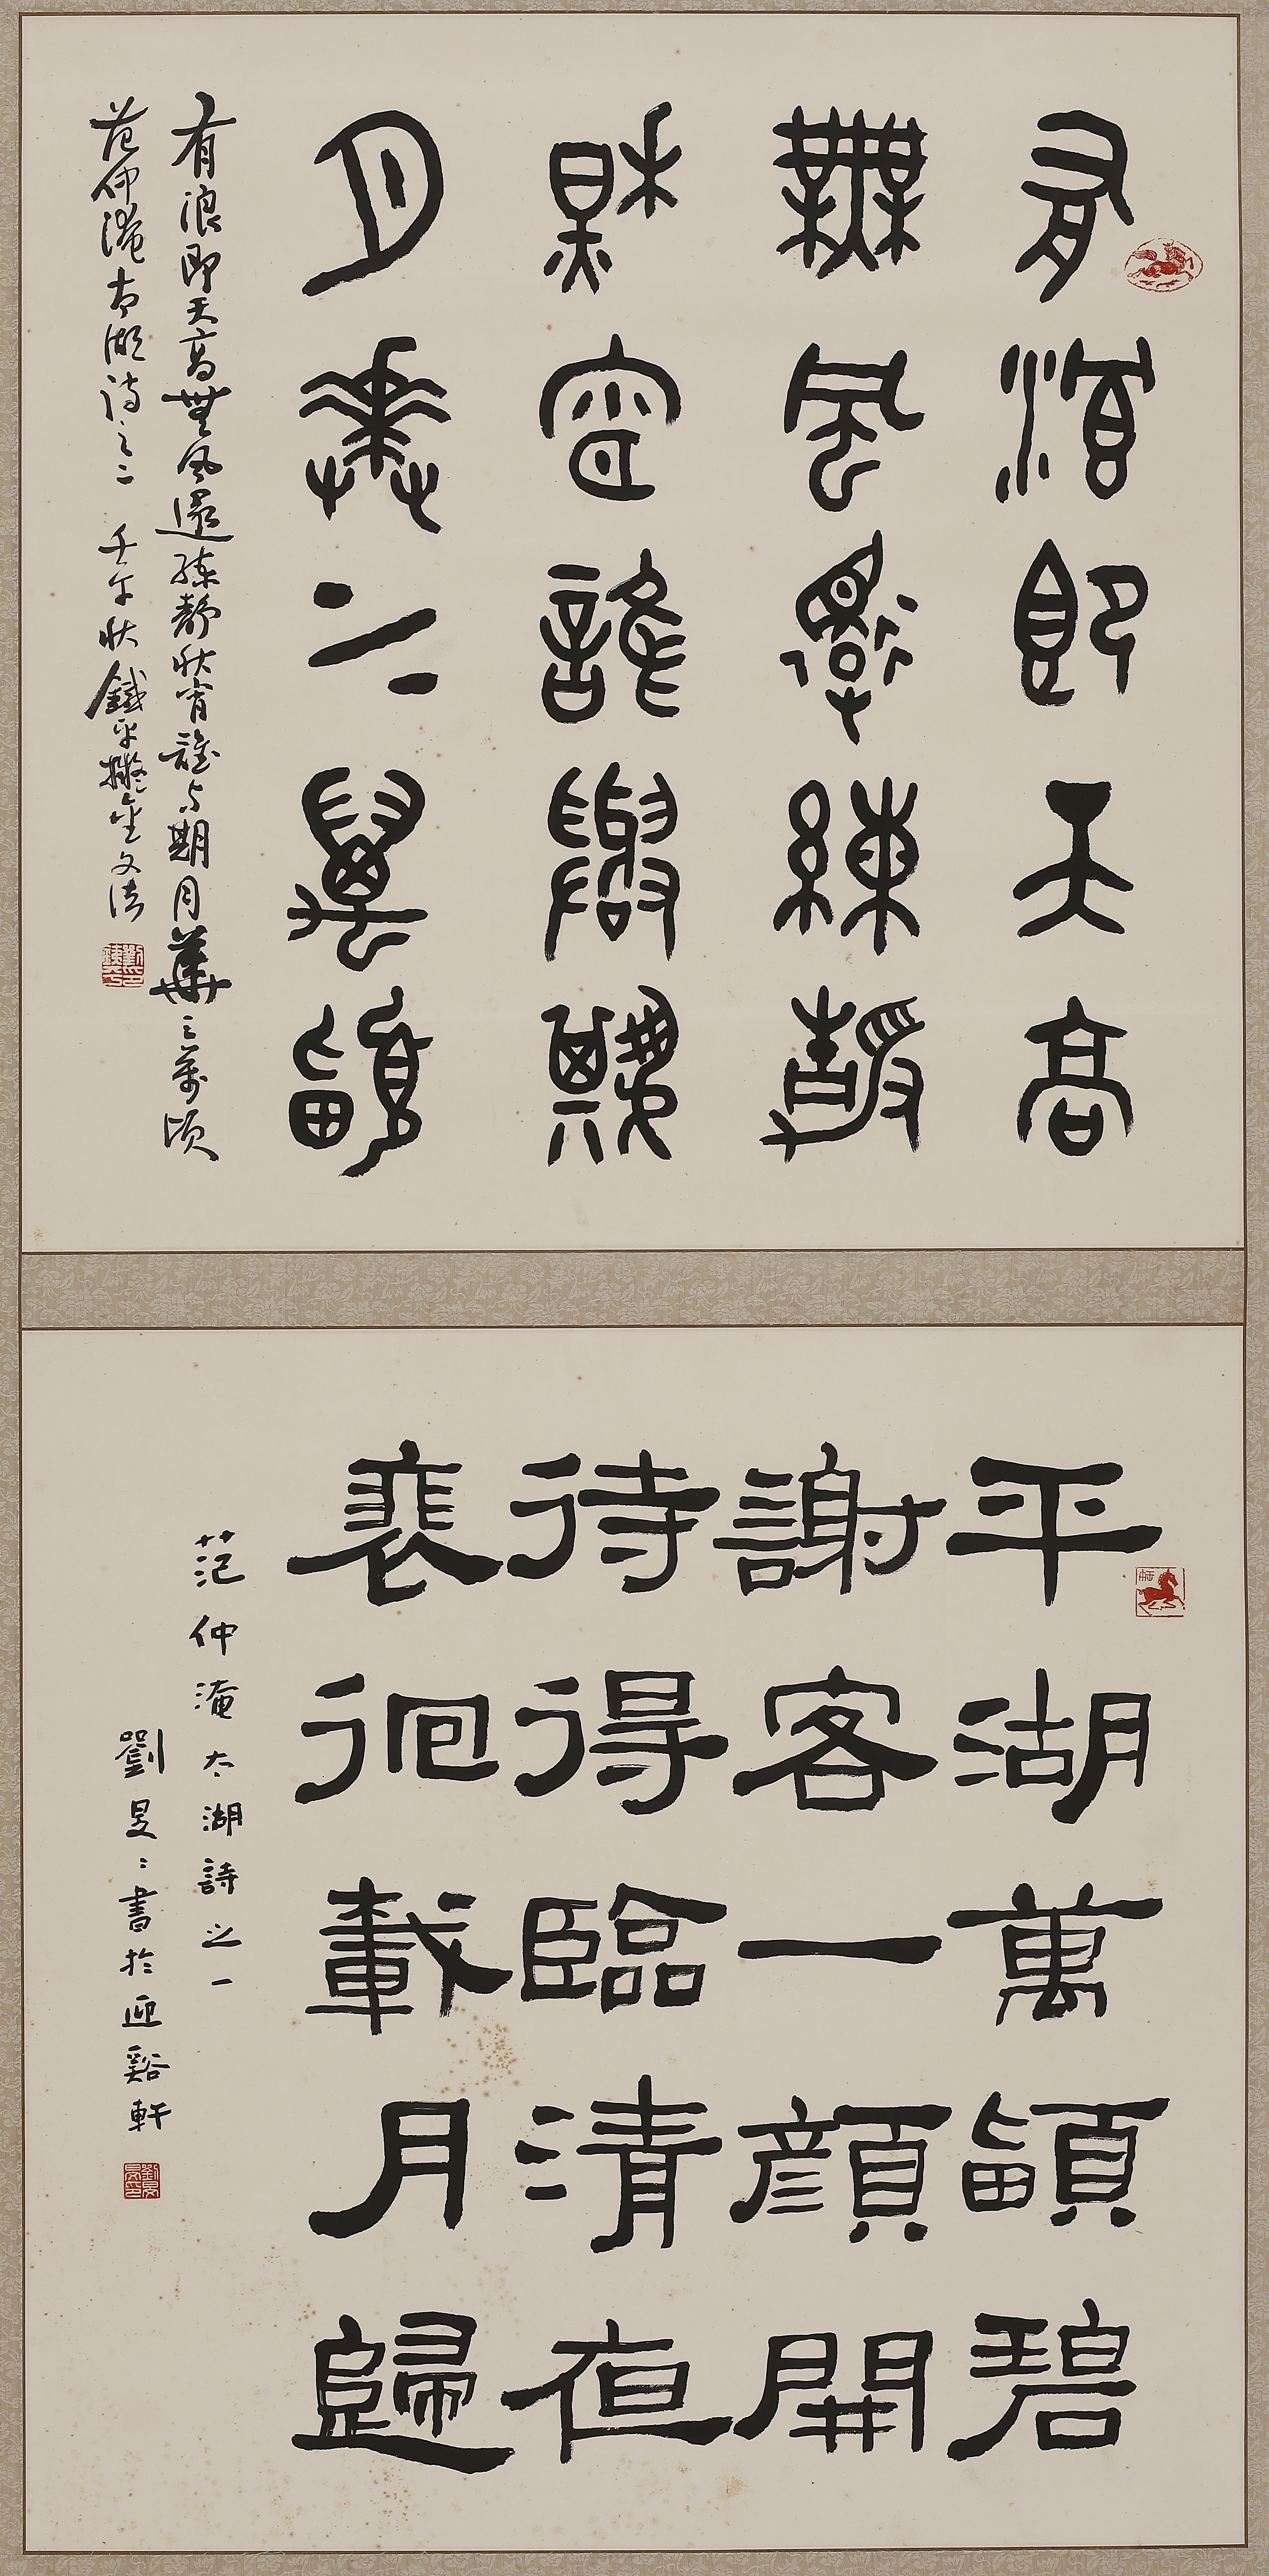 有浪即天高
無風還練靜
秋宵誰與期
月華之萬頃
有浪即天高無風還練靜秋宵誰与期月華之萬頃
范仲淹太湖詩之二 壬午秋鐵平擬金文法
平湖萬頃碧
謝客一顏開
待得臨清夜
裴徊載月歸
范仲淹太湖詩之一
劉旻〻書於迎谿軒